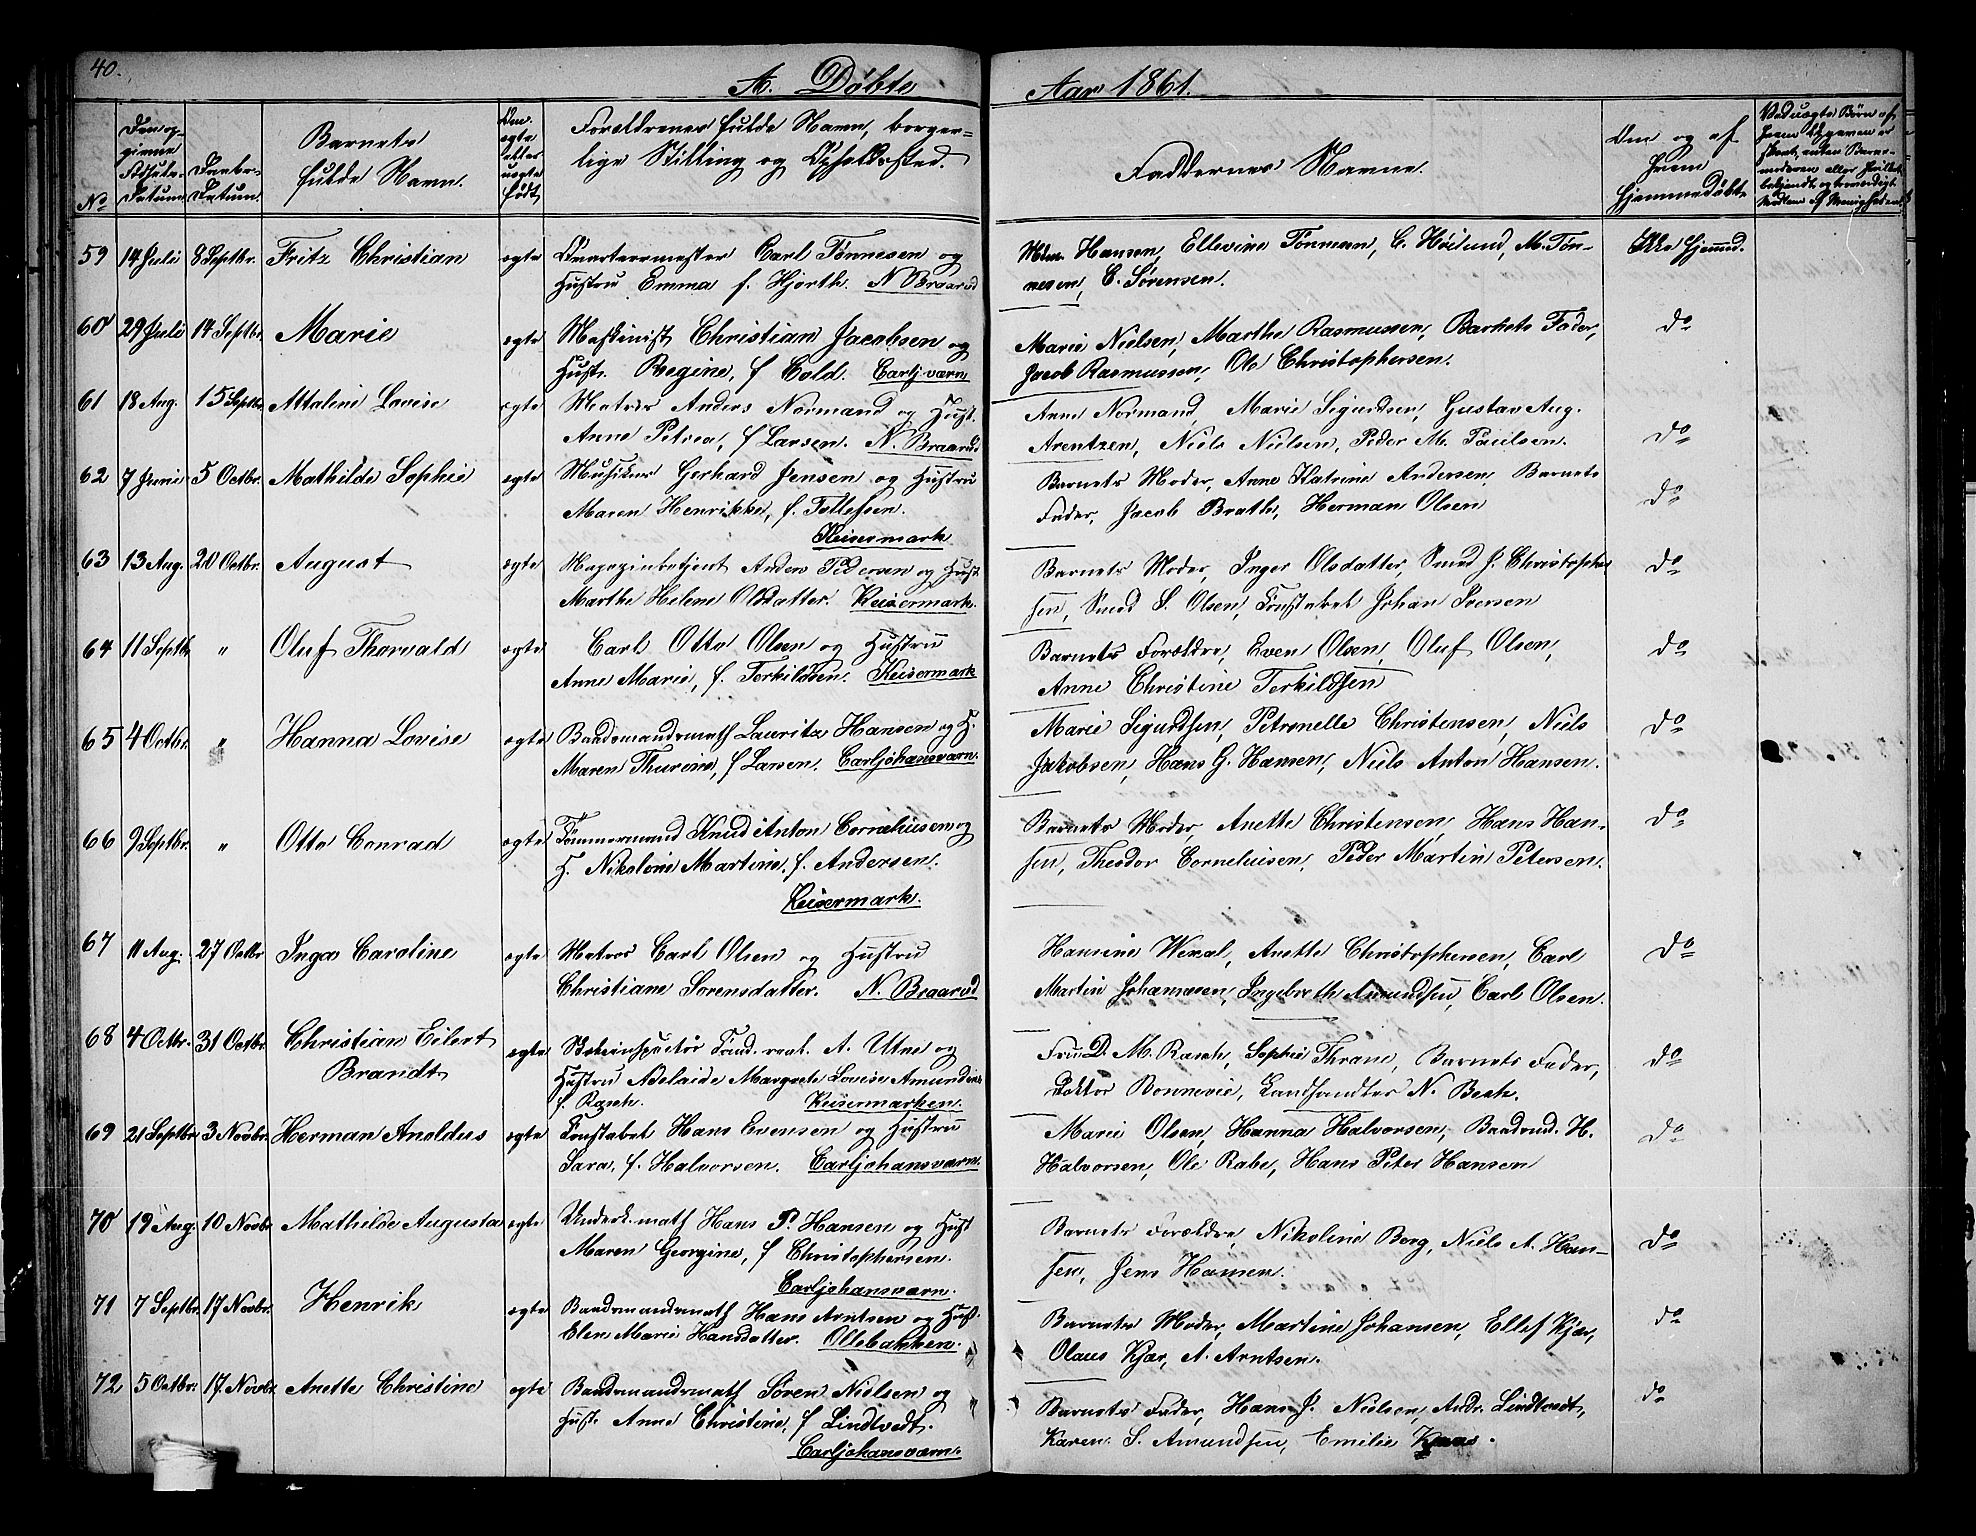 40.
A. Døbte
Aar 1861.
No
Den op-
givne
Fødsels-
Datum
Daabs-
Datum.
Barnets
fulde Navn.
Om
ægte
eller
uægte
født
Forældrenes fulde Navn, borger-
lige Stilling og Opholdssted.
Faddernes Navne.
Om og af
hvem
hjemmedøbt
Ved uægte Børn af
59 14 Juli 8 Septbr. Fritz Christian ægte Quarteermester Carl Tønnesen og
Hustru Emma f. Hjorth. N Braarud
Hansen, Ellevine Tønnesen, C. Høilund, M. Tøn-
nesen, C. Sørensen.
Ikke hjemmed.
60 29 Juli 14 Septbr. Marie ægte Maskinist Christian Jacobsen og
Hustr. Regine, f Cold. Carlj.værn
Marie Nielsen, Marthe Rasmussen, Barnets Fader,
Jacob Rasmussen, Ole Christophersen.
Do
61 18 Aug. 15 Septbr. Attaline Lovise ægte Matros Anders Normand og Hust.
Anne Petrea, f Larsen. N. Braarud
Anne Normand, Marie Sigurdsen, Gustav Aug.
Arentzen, Niels Nielsen, Peder M. Paulsen.
Do
62 7 Juni 5 Octbr. Mathilde Sophie ægte Musiker Gerhard Jensen og Hustru
Maren Henrikke, f. Tollefsen.
Keisermark.
Barnets Moder, Anne Katrine Andersen, Barnets
Fader, Jacob Brath, Herman Olsen
Do
63 13 Aug. 20 Octbr. August ægte Magazinbetjent Anders Pedersen og Hust
Marthe Helene Olsdatter. Keisermark.
Barnets Moder, Inger Olsdatter, Smed J. Christopher
sen, Smed S. Olsen, Constabel Johan Iversen
Do
64 11 Septbr. " Oluf Thorvald ægte Carl Otto Olsen og Hustru
Anne Marie, f. Terkildsen. Keisermark
Barnets Forældre, Even Olsen, Oluf Olsen,
Anne Christine Terkildsen
Do
65 4 Octbr. " Hanna Lovise ægte Baadsmandsmath Lauritz Hansen og H.
Maren Thurine, f Larsen. Carljohansværn.
Marie Sigurdsen, Petronelle Christensen, Niels
Jakobsen, Hans G. Hansen, Niels Anton Hansen.
Do
66 9 Septbr. " Otto Conrad ægte Tømmermand Knud Anton Corneliusen og
H. Nikoline Martine, f. Andersen.
Keisermark.
Barnets Moder, Anette Christensen, Hans Han-
sen, Theodor Corneliusen, Peder Martin Petersen.
Do
67 11 Aug. 27 Octbr Inga Caroline ægte Matros Carl Olsen og Hustru
Christiane Sørensdatter. N. Braarud
Hansine Wexal, Anette Christophersen, Carl
Martin Johannesen, Ingeborth Amundsen, Carl Olsen.
Do
68 4 Octbr. 31 Octbr. Christian Eilert
Brandt
ægte A. Utne og
Hustru Adelaide Margrete Lovise Amundsen
f. Rasch. Keisermarken.
Fru D. M. Rasch, Sophie Thrane, Barnets Fader,
Doktor Bonnevie, Landhandler N. Bech.
Do
69 21 Septbr. 3 Novbr. Herman Anoldus ægte Constabel Hans Evensen og Hustru
Sara, f. Halvorsen. Carljohansværn.
Marie Olsen, Hanna Halvorsen, Baadsmd. H.
Halvorsen, Ole Rabe, Hans Peter Hansen
Do
70 19 Aug. 10 Novbr. Mathilde Augusta ægte Underk.math Hans P. Hansen og Hust
Maren Georgine, f Christophersen.
Carljohansværn.
Barnets Forældre, Nikoline Berg, Niels A. Han-
sen, Jens Hansen.
Do
71 7 Septbr. 17 Novbr. Henrik ægte Baadsmandsmath Hans Arntsen og Hust.
Elen Marie Hansdatter. Ollebakken.
Barnets Moder, Martine Johansen, Ellef Kjær,
Olaus Kjær, A. Arntsen.
do
72 5 Octbr. 17 Novbr. Anette Christine ægte Baadsmandsmath Søren Nielsen og
Hust. Anne Christine, f Lindtvedt.
Carljohansværn.
Barnets Fader, Hans J. Nielsen, Andr. Lindtvedt,
Karen S. Amundsen, Emilie
do